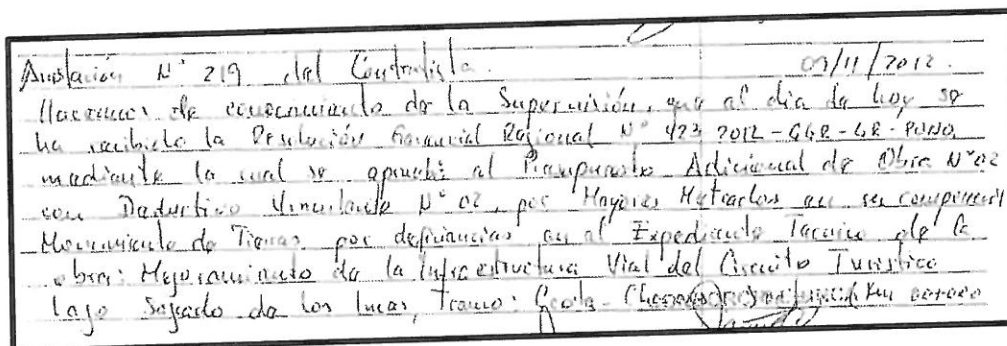 Anotación N° 219 del Contratista. 09/11/2012.
Hacemos de conocimiento de la Supervisión, que al dia de hoy se
ha recibido la Resolución Gerencial Regional N° 423 2012-GGR-GR-PUNO,
mediante la cual se aprueba el Presupuesto Adicional de Obra N° 02
con Deductivo Vinculante N° 02, por Mayores Metrados en su componente
Movimiento de Tierras por deficiencias en el Expediente Tecnico de la
obra: Mejoramiento de la Infraestructura Vial del Circuito Turistico
Lago Sagrado de los Incas, Tramo: